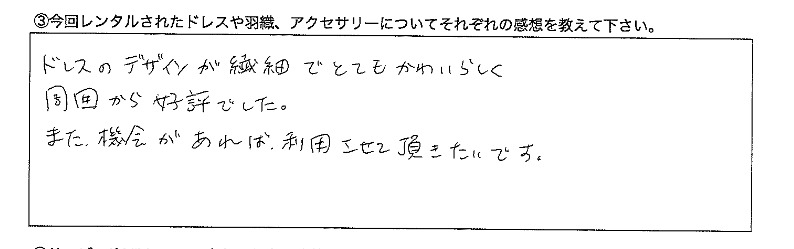 ③今回レンタルされたドレスや羽織、アクセサリーについてそれぞれの感想を教えて下さい。
ドレスのデザインが繊細でとてもかわいらしく
周囲から好評でした。
また、機会があれば、利用させて頂きたいです。